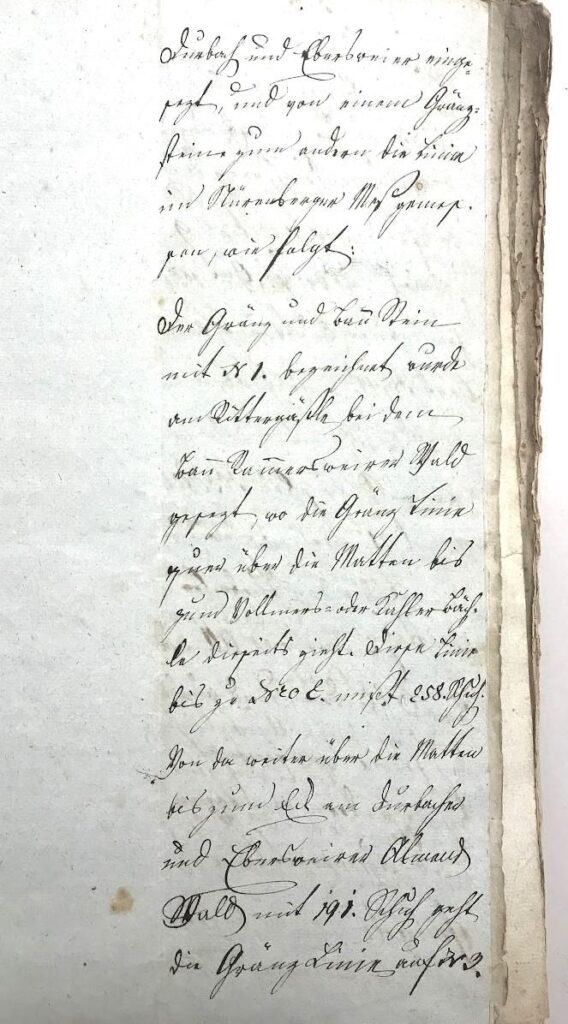 Durbach und Ebersweier einge-
sezt, und von einem Gränz-
steine zum andern die Linie
im Nürenberger Meß gemes-
sen, wie folgt:
Der Gränz und Bañ Stein
mit N 1. bezeichnet wurde
am Rittergäßle bei dem
Bañ Ram̃ersweirer Wald
gesezt, wo die Gränz Linie
quer über die Matten bis
zum Vollmers- oder Kahler Bäch-
le disseits zieht. Diese Linie
bis zu Nro 2. mißt 258. Schuh.
Von da weiter über die Matten
bis zum Eck am Durbacher
und Ebersweirer Almend
Wald mit 191. Schuh geht
die Gränz Linie auf N 3.